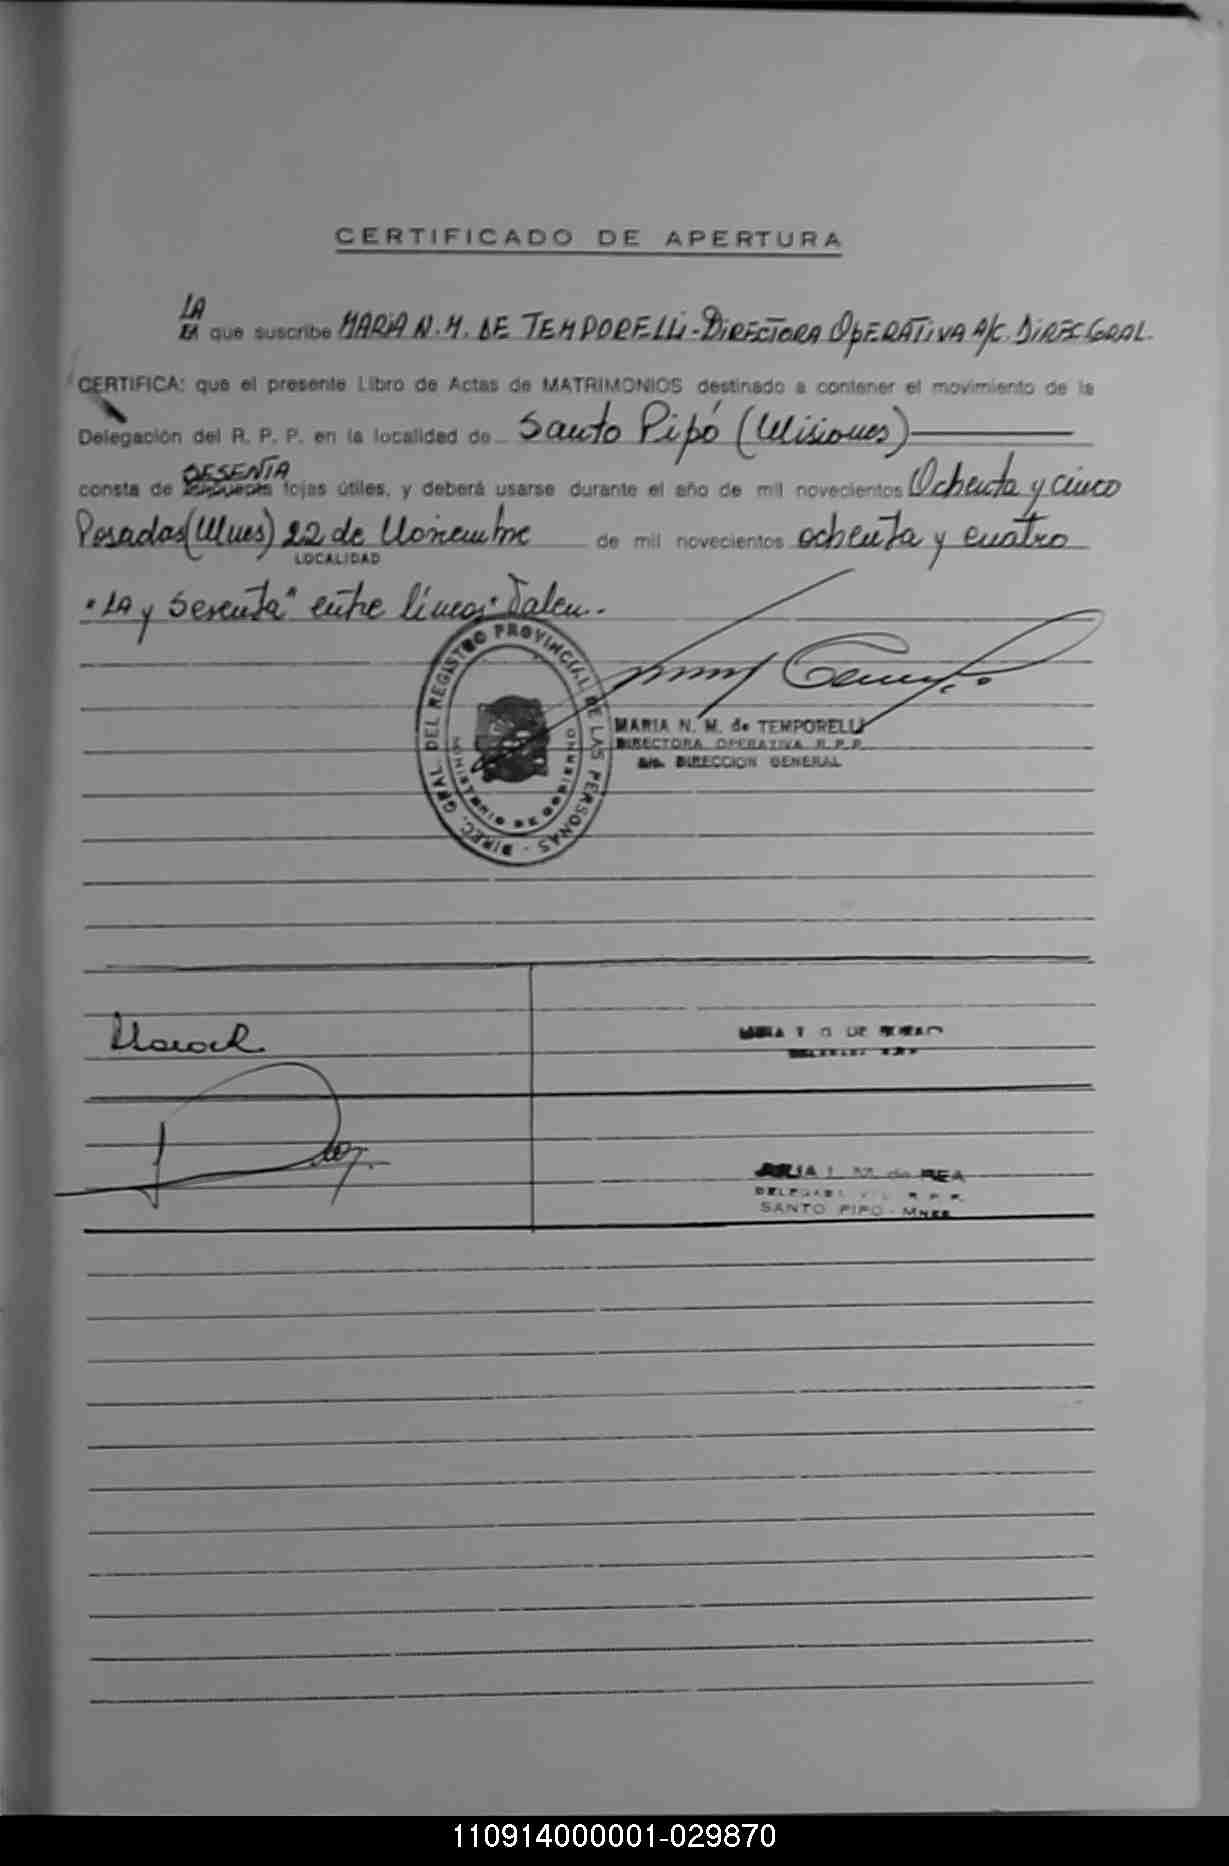 CERTIFICADO DE APERTURA
LA
El que suscribe MARIA N. M. DE TEMPORELLi - DIRECTORA OPERATIVA A/C. DIREC GRAL.
CERTIFICA: que el presente Libro de Actas de MATRIMONIOS destinado a contener el movimiento de la
Delegación del R. P. P. en la localidad de Santo Pipó (Misiones)
SESENTA
consta de fojas útiles, y deberá usarse durante el año de mil novecientos Ochenta y cinco
Posadas (Mnes) 22 de Noviembre de mil novecientos ochenta y cuatro
LOCALIDAD
"LA y Sesenta" entre líneas: Valen.
DIREC. GRAL. DEL REGISTRO PROVINCIAL DE LAS PERSONAS
MINISTERIO DE GOBIERNO
MARIA N. M. de TEMPORELLI
DIRECTORA OPERATIVA R.P.P.
a/c. DIRECCION GENERAL
DE
M. de REA
R. P. P.
SANTO PIPO - Mnes
110914000001-029870